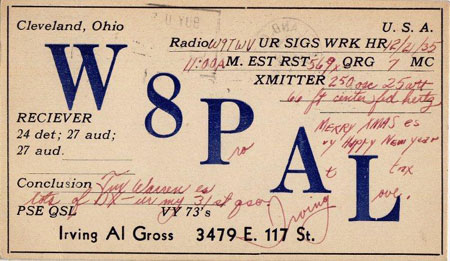 Cleveland, Ohio U. S. A.
Radio W9TWV UR SIGS WRK HR 12/21/35
11:00A M. EST RST 569x QRG 7 MC
XMITTER 250 osc 25 wtt
66 ft center fed hertz
W8PAL
RECIEVER
24 det; 27 aud;
27 aud.
MERRY XMAS es
Happy New year
Conclusion Tnx Warren es
lots of DX - ur my 31st qso
PSE QSL VY 73's
Irving
Irving Al Gross 3479 E. 117 St.